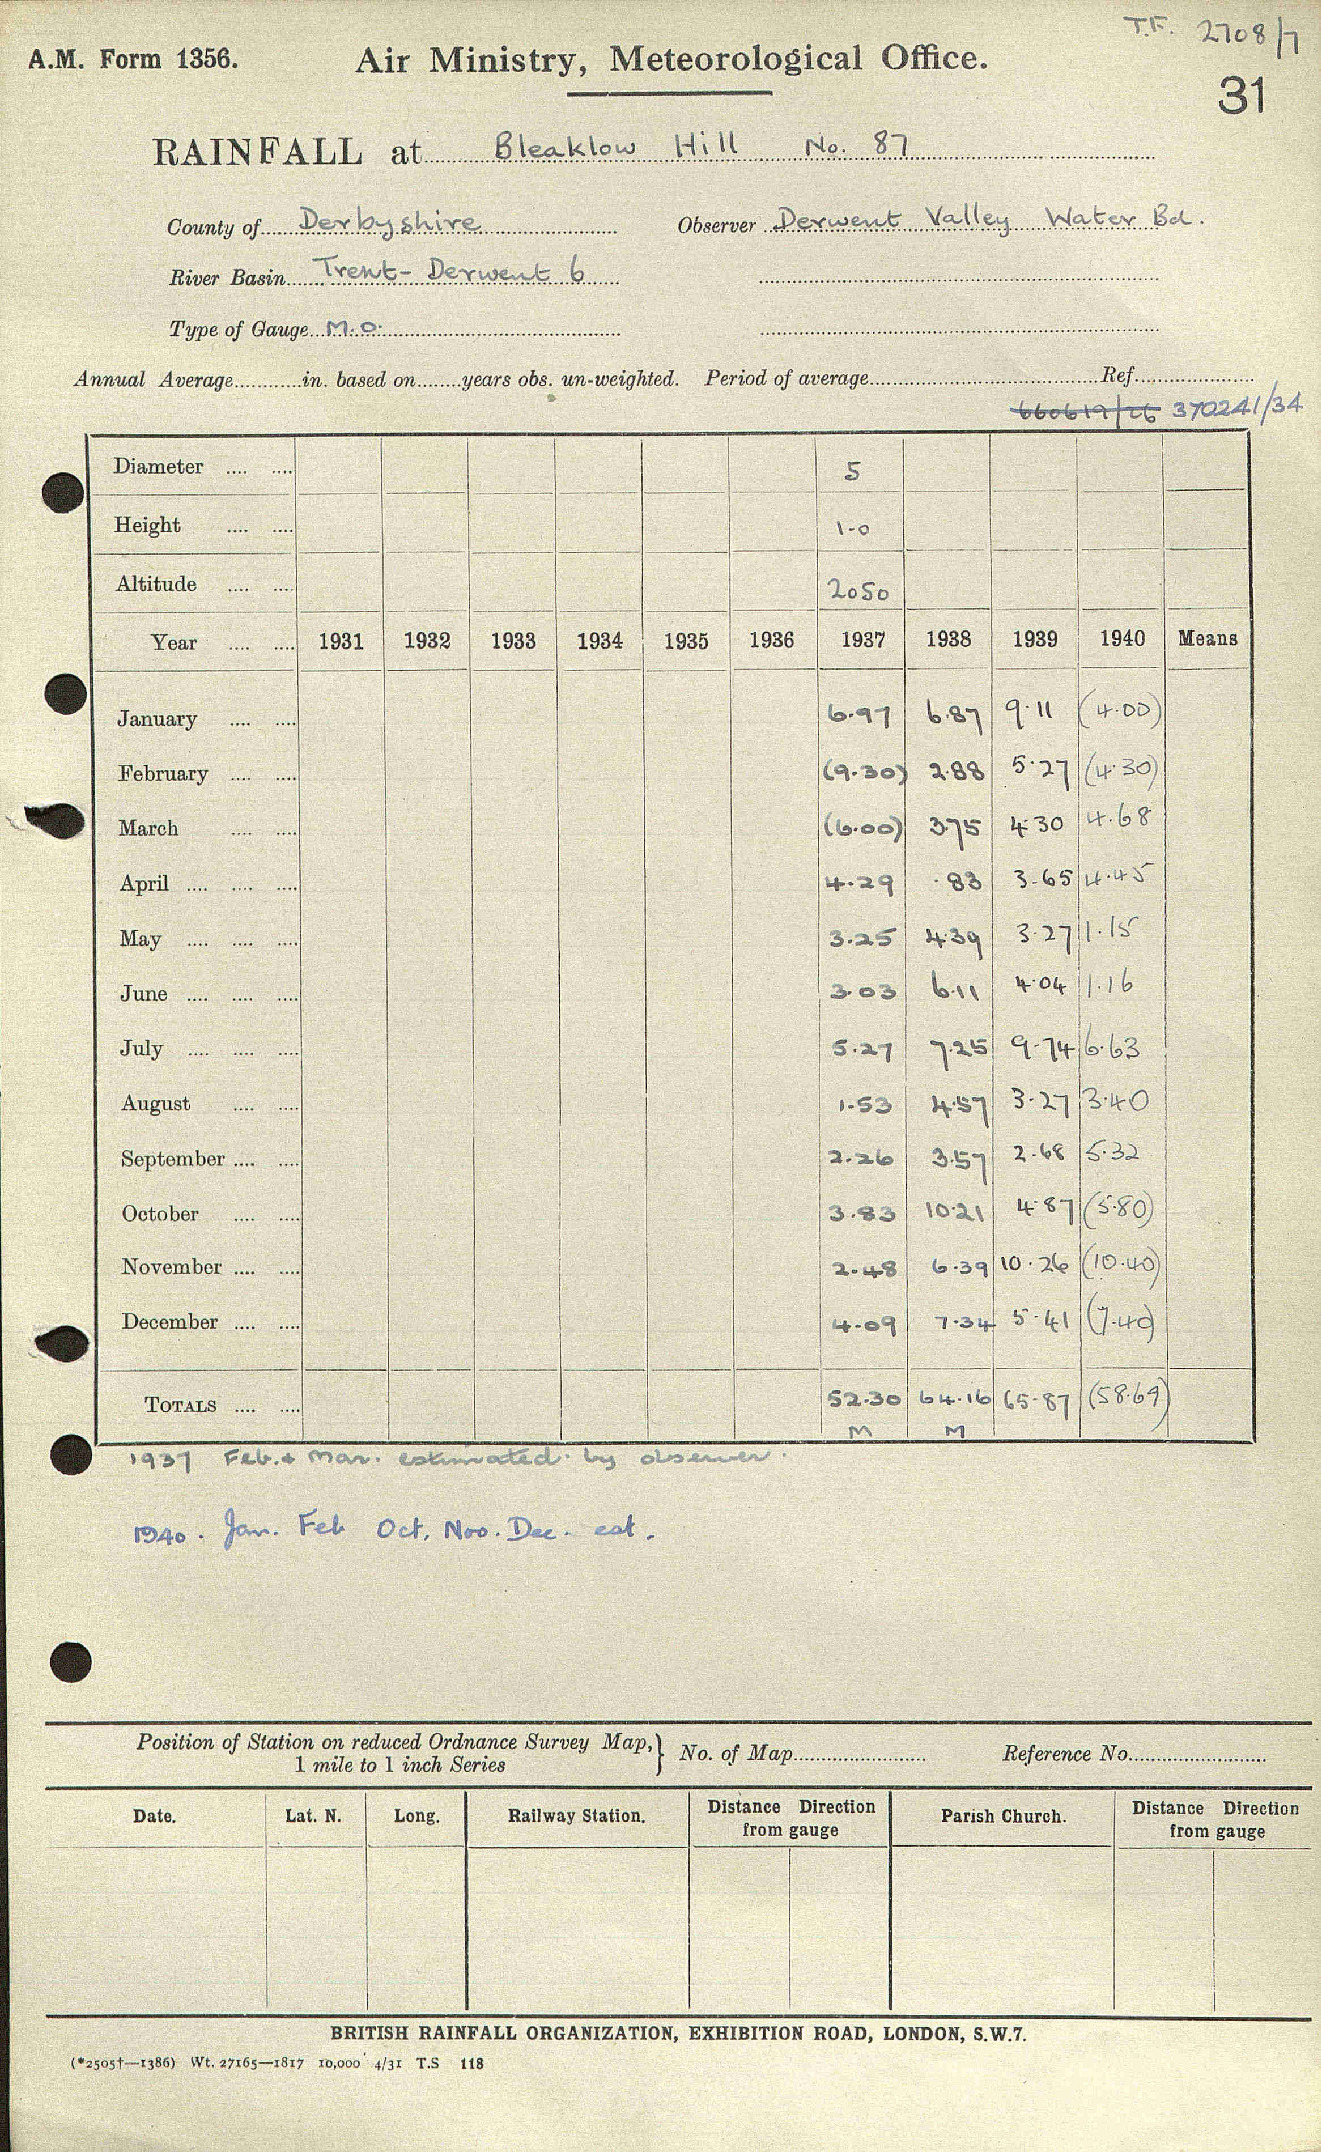 T.F. 2708/7
A.M. Form 1356. Air Ministry, Meteorological Office.
31
RAINFALL at Bleaklow Hill No. 87
County of Derbyshire Observer Derwent Valley Water Bd.
River Basin Trent-Derwent 6
Type of Gauge M.O.
Annual Average in. based on years obs. un-weighted. Period of average Ref.
660619/26 370241/34
Diameter 5
Height 1-0
Altitude 2050
Year 1931 1932 1933 1934 1935 1936 1937 1938 1939 1940 Means
January 6.97 6.87 9.11 (4.00)
February (9.30) 2.88 5.27 (4.30)
March (6.00) 3.75 4.30 4.68
April 4.29 .83 3.65 4.45
May 3.25 4.39 3.27 1.15
June 3.03 6.11 4.04 1.16
July 5.27 7.25 9.74 6.63
August 1.53 4.57 3.27 3.40
September 2.26 3.57 2.68 5.32
October 3.83 10.21 4.87 (5.80)
November 2.48 6.39 10.26 (10.40)
December 4.09 7.34 5.41 (7.40)
TOTALS 52.30 64.16 65.87 (58.69)
M M
1937 Feb. & Mar. estimated by observer.
1940. Jan. Feb Oct. Nov. Dec. est.
Position of Station on reduced Ordnance Survey Map, } No. of Map Reference No.
1 mile to 1 inch Series
Date. Lat. N. Long. Railway Station. Distance Direction from gauge Parish Church. Distance Direction from gauge
BRITISH RAINFALL ORGANIZATION, EXHIBITION ROAD, LONDON, S.W.7.
(*2505†—1386) Wt. 27165—1817 10,000 4/31 T.S 118